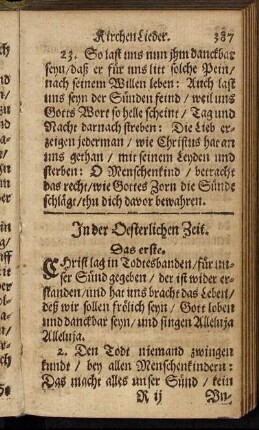 KirchenLieder. 387
23. So last uns nun jhm danckbar
seyn/ daß er für uns litt solche Pein/
nach seinem Willen leben: Auch last
uns seyn der Sünden feind / weil uns
Gotts Wort so helle scheint / Tag und
Nacht darnach streben: Die Lieb er-
zeigen jederman / wie Christus hat an
uns gethan / mit seinem Leyden und
sterben: O Menschenkind / betracht
das recht/ wie Gottes Zorn die Sünde
schläge/ thu dich davor bewahren.
In der Oesterlichen Zeit.
Das erste.
CHrist lag in Todtesbanden/ für un-
ser Sünd gegeben / der ist wider er-
standen/ und hat uns bracht das Leben/
deß wir sollen frölich seyn / Gott loben
und danckbar seyn/ und singen Alleluja
Alleluja.
2. Den Todt niemand zwingen
kundte / bey allen Menschenkindern:
Das macht alles unser Sünd / kein
R ij Un-